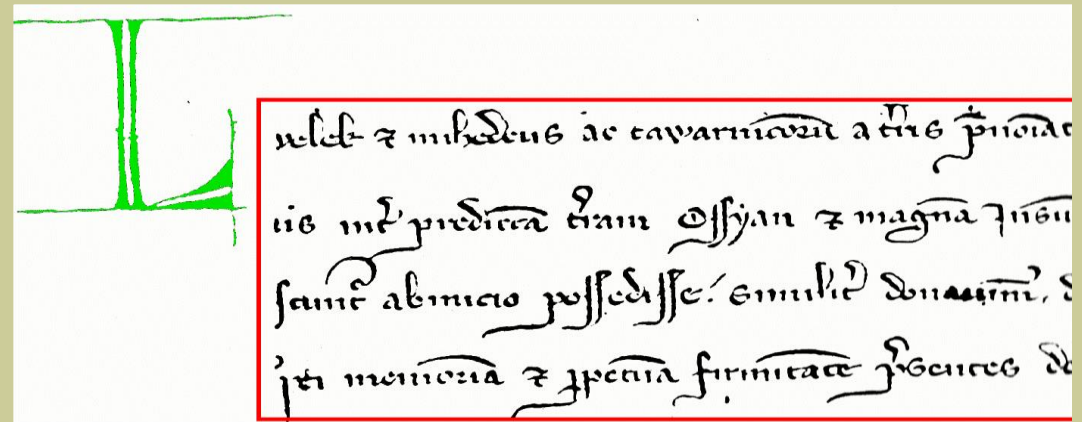 L
velek ⁊ mihedeus ac cawarnicorū a tr̄is p̄noīat
iis int̄ predictā t̄ram Ossyan ⁊ magnā Insu
sanc̄t ab inicio possedisse. similit̄ donauim̄
rei memoriā ⁊ ꝑpetuā firmitatē p̄sentes